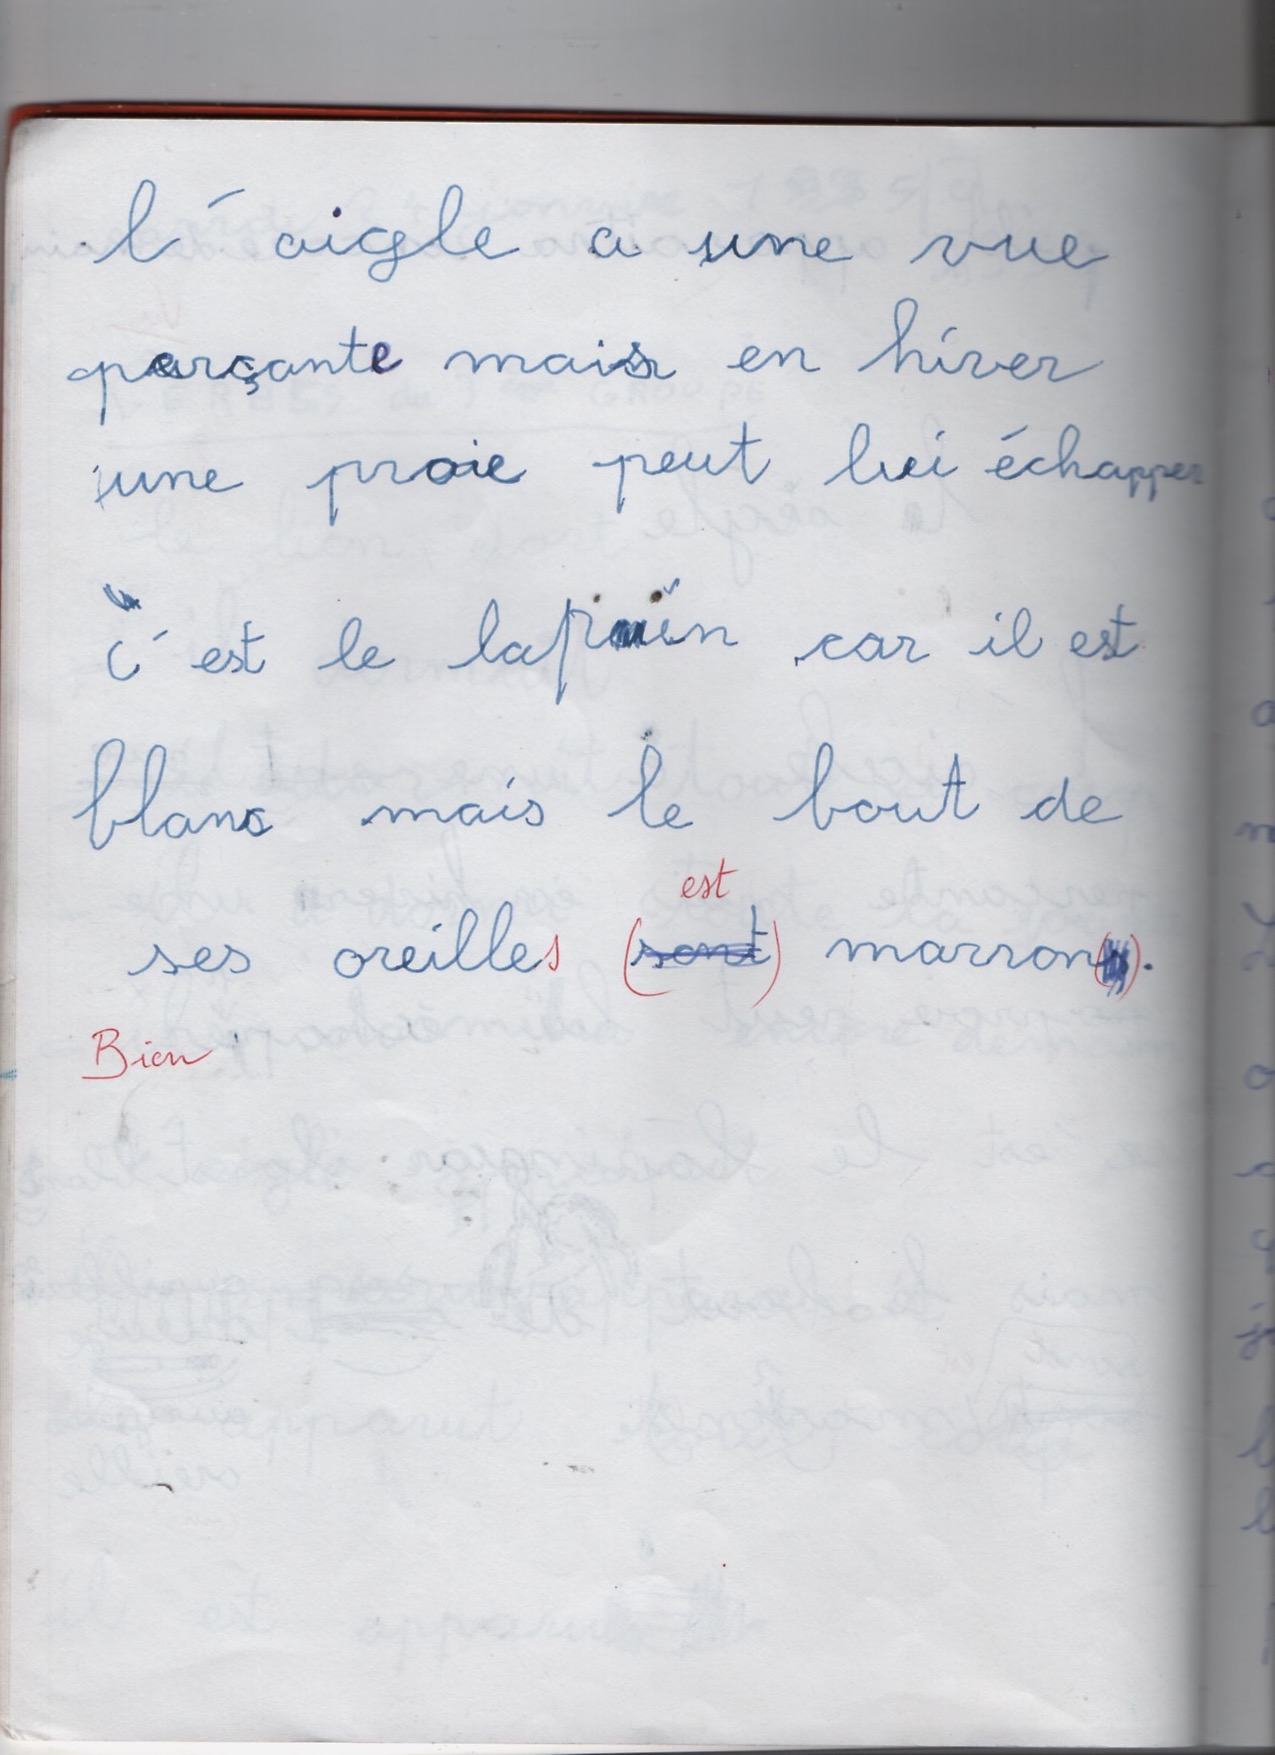 l'aigle a une vue
perçante mais en hiver
une proie peut lui échapper
c'est le lapin car il est
blanc mais le bout de
est
ses oreilles (sont) marron().
Bien